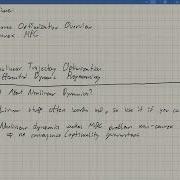 Convex Optimization Overview
Convex MPC
Nonlinear Trajectory Optimization
Differential Dynamic Programming
What About Nonlinear Dynamics?
Linear stuff often works well, so use it if you can
Nonlinear dynamics makes MPC problem non-convex
=> no convergence/optimality guarantees